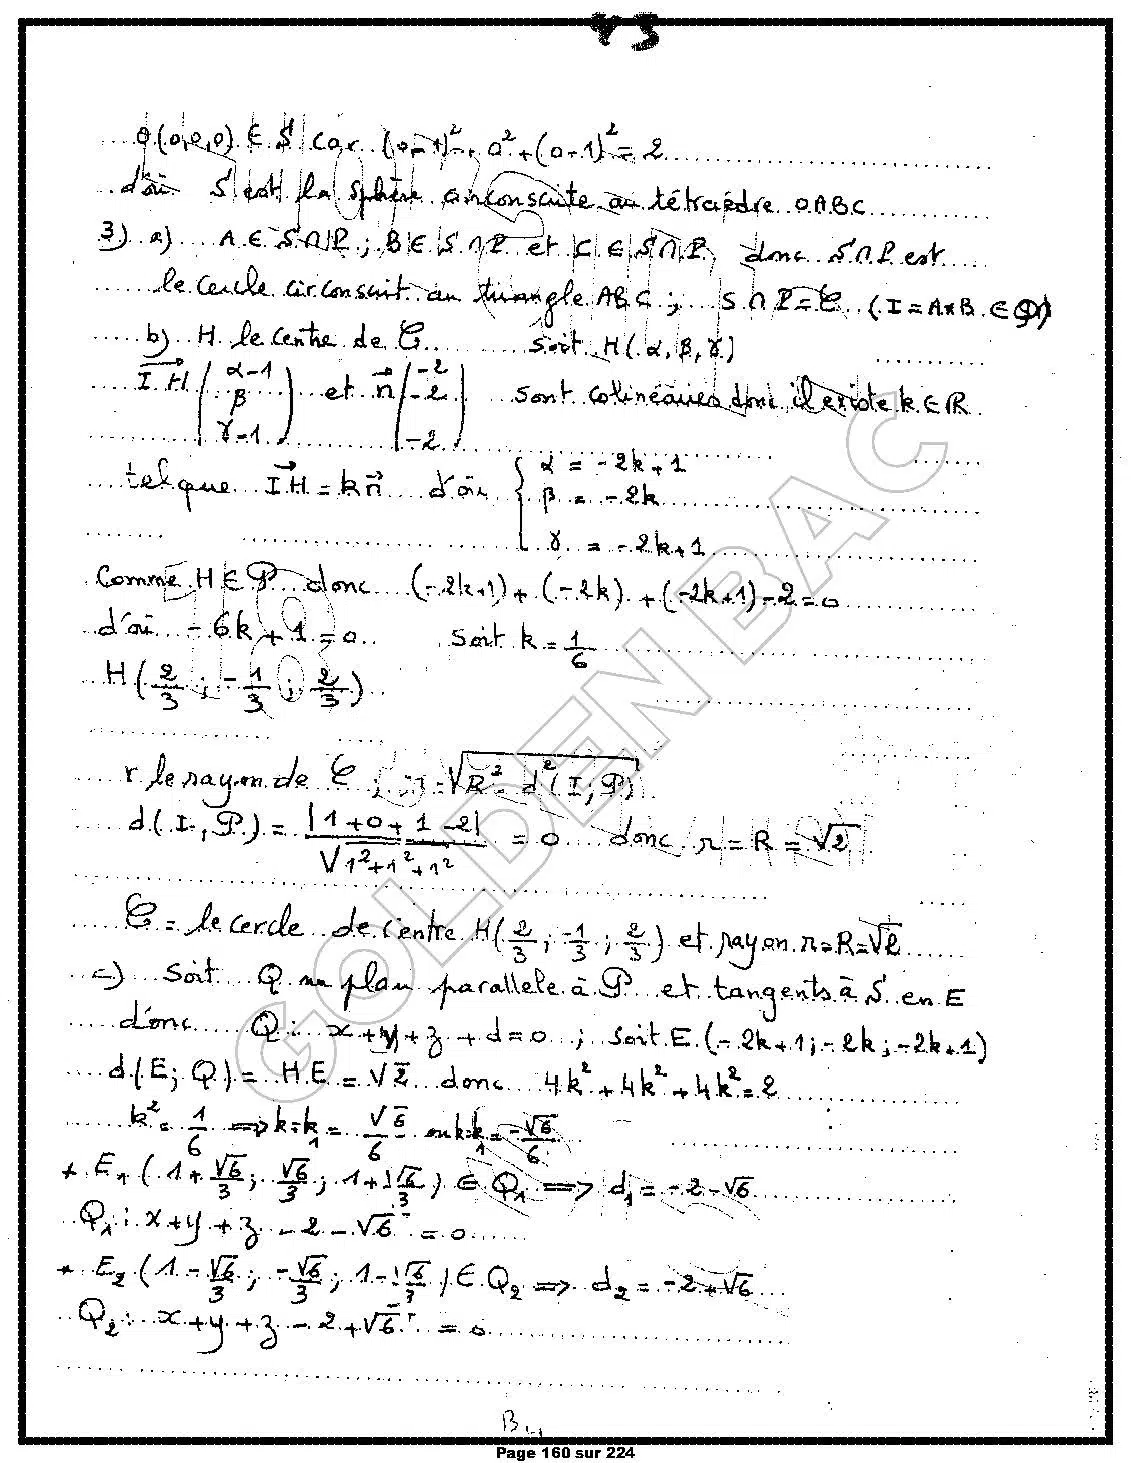 43
O(0,0,0) ∈ S car (0-1)² + 0² + (0-1)² = 2
d'où S est la sphère circonscrite au tétraèdre OABC
3) a) A ∈ S∩P ; B ∈ S∩P et C ∈ S∩P donc S∩P est
le cercle circonscrit au triangle ABC ; S∩P = C (I = A*B ∈ P)
b) H le centre de C soit H(α, β, γ)
IH (α-1, β, γ-1) et n (-2, -2, -2) sont colinéaires donc il existe k ∈ R
tel que IH = kn d'où { α = -2k+1
β = -2k
γ = -2k+1
Comme H ∈ P donc (-2k+1) + (-2k) + (-2k+1) - 2 = 0
d'où -6k + 1 = 0 soit k = 1/6
H(2/3 ; -1/3 ; 2/3)
r le rayon de C ; r = √(R² - d²(I, P))
d(I, P) = |1+0+1-2| / √(1²+1²+1²) = 0 donc r = R = √2
C = le cercle de centre H(2/3 ; -1/3 ; 2/3) et rayon r = R = √2
c) Soit Q un plan parallele à P et tangents à S en E
donc Q : x+y+z+d=0 ; soit E(-2k+1 ; -2k ; -2k+1)
d(E; Q) = HE = √2 donc 4k² + 4k² + 4k² = 2
k² = 1/6 ⟹ k=k₁ = √6/6 ou k=k₁ = -√6/6
* E₁(1+√6/3 ; √6/3 ; 1+√6/3) ∈ Q₁ ⟹ d₁ = -2-√6
Q₁ : x+y+z-2-√6 = 0
* E₂(1-√6/3 ; -√6/3 ; 1-√6/3) ∈ Q₂ ⟹ d₂ = -2+√6
Q₂ : x+y+z-2+√6 = 0
GOLDEN BAC
Page 160 sur 224